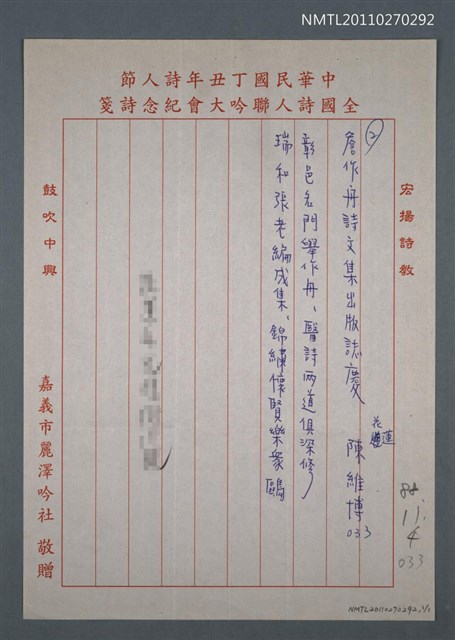 NMTL20110270292
中華民國丁丑年詩人節
全國詩人聯吟大會紀念詩箋
宏揚詩教
(2)
詹作舟詩文集出版誌慶
花蓮
陳維博
033
彰邑名門舉作舟、醫詩兩道俱深修
瑞和張老編成集、錦繡懷賢樂眾鷗
鼓吹中興
嘉義市麗澤吟社 敬贈
88.
11.
4
033
NMTL20110270292, 1/1